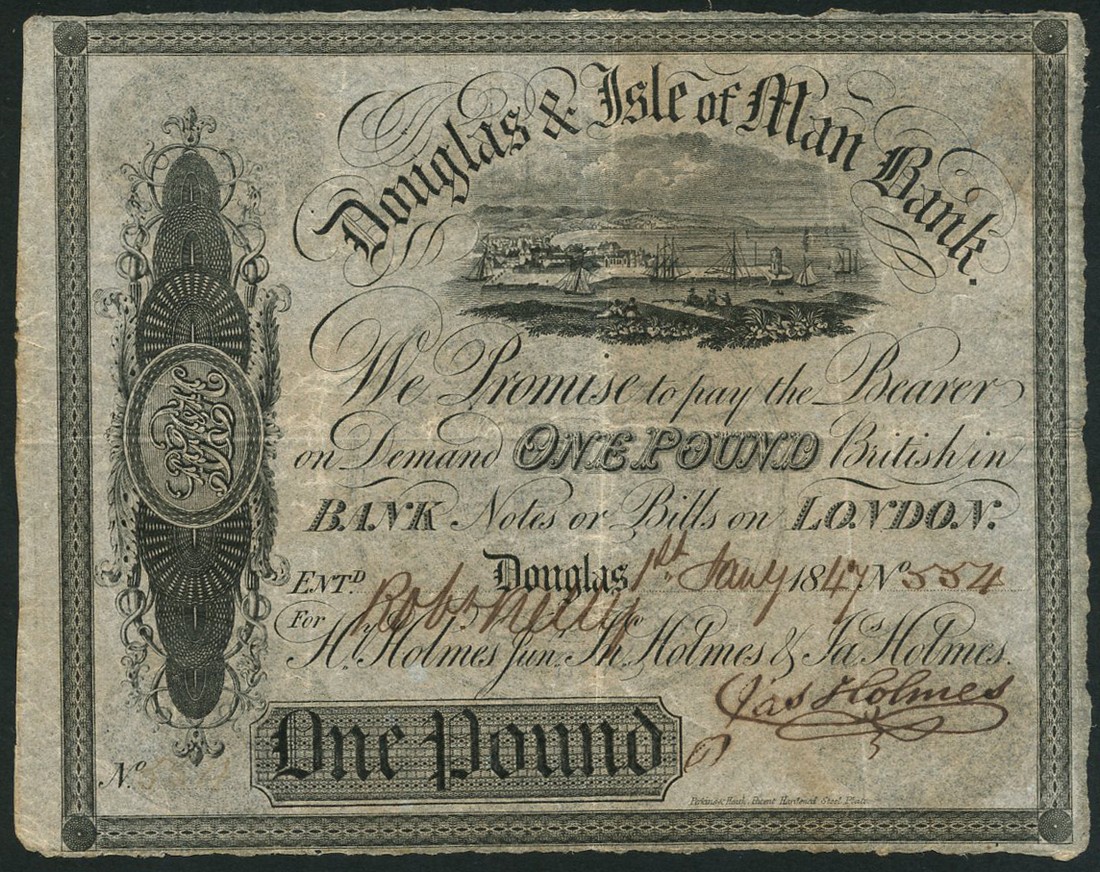 Douglas & Isle of Man Bank.
We Promise to pay the Bearer
on Demand ONE POUND British in
BANK Notes or Bills on LONDON.
Douglas 1st Jany 1847 No 554
ENTD.
For Hy. Holmes Junr. Jn. Holmes & Jas Holmes.
Jas Holmes
One Pound
No
Perkins & Heath, Patent Hardened Steel Plate